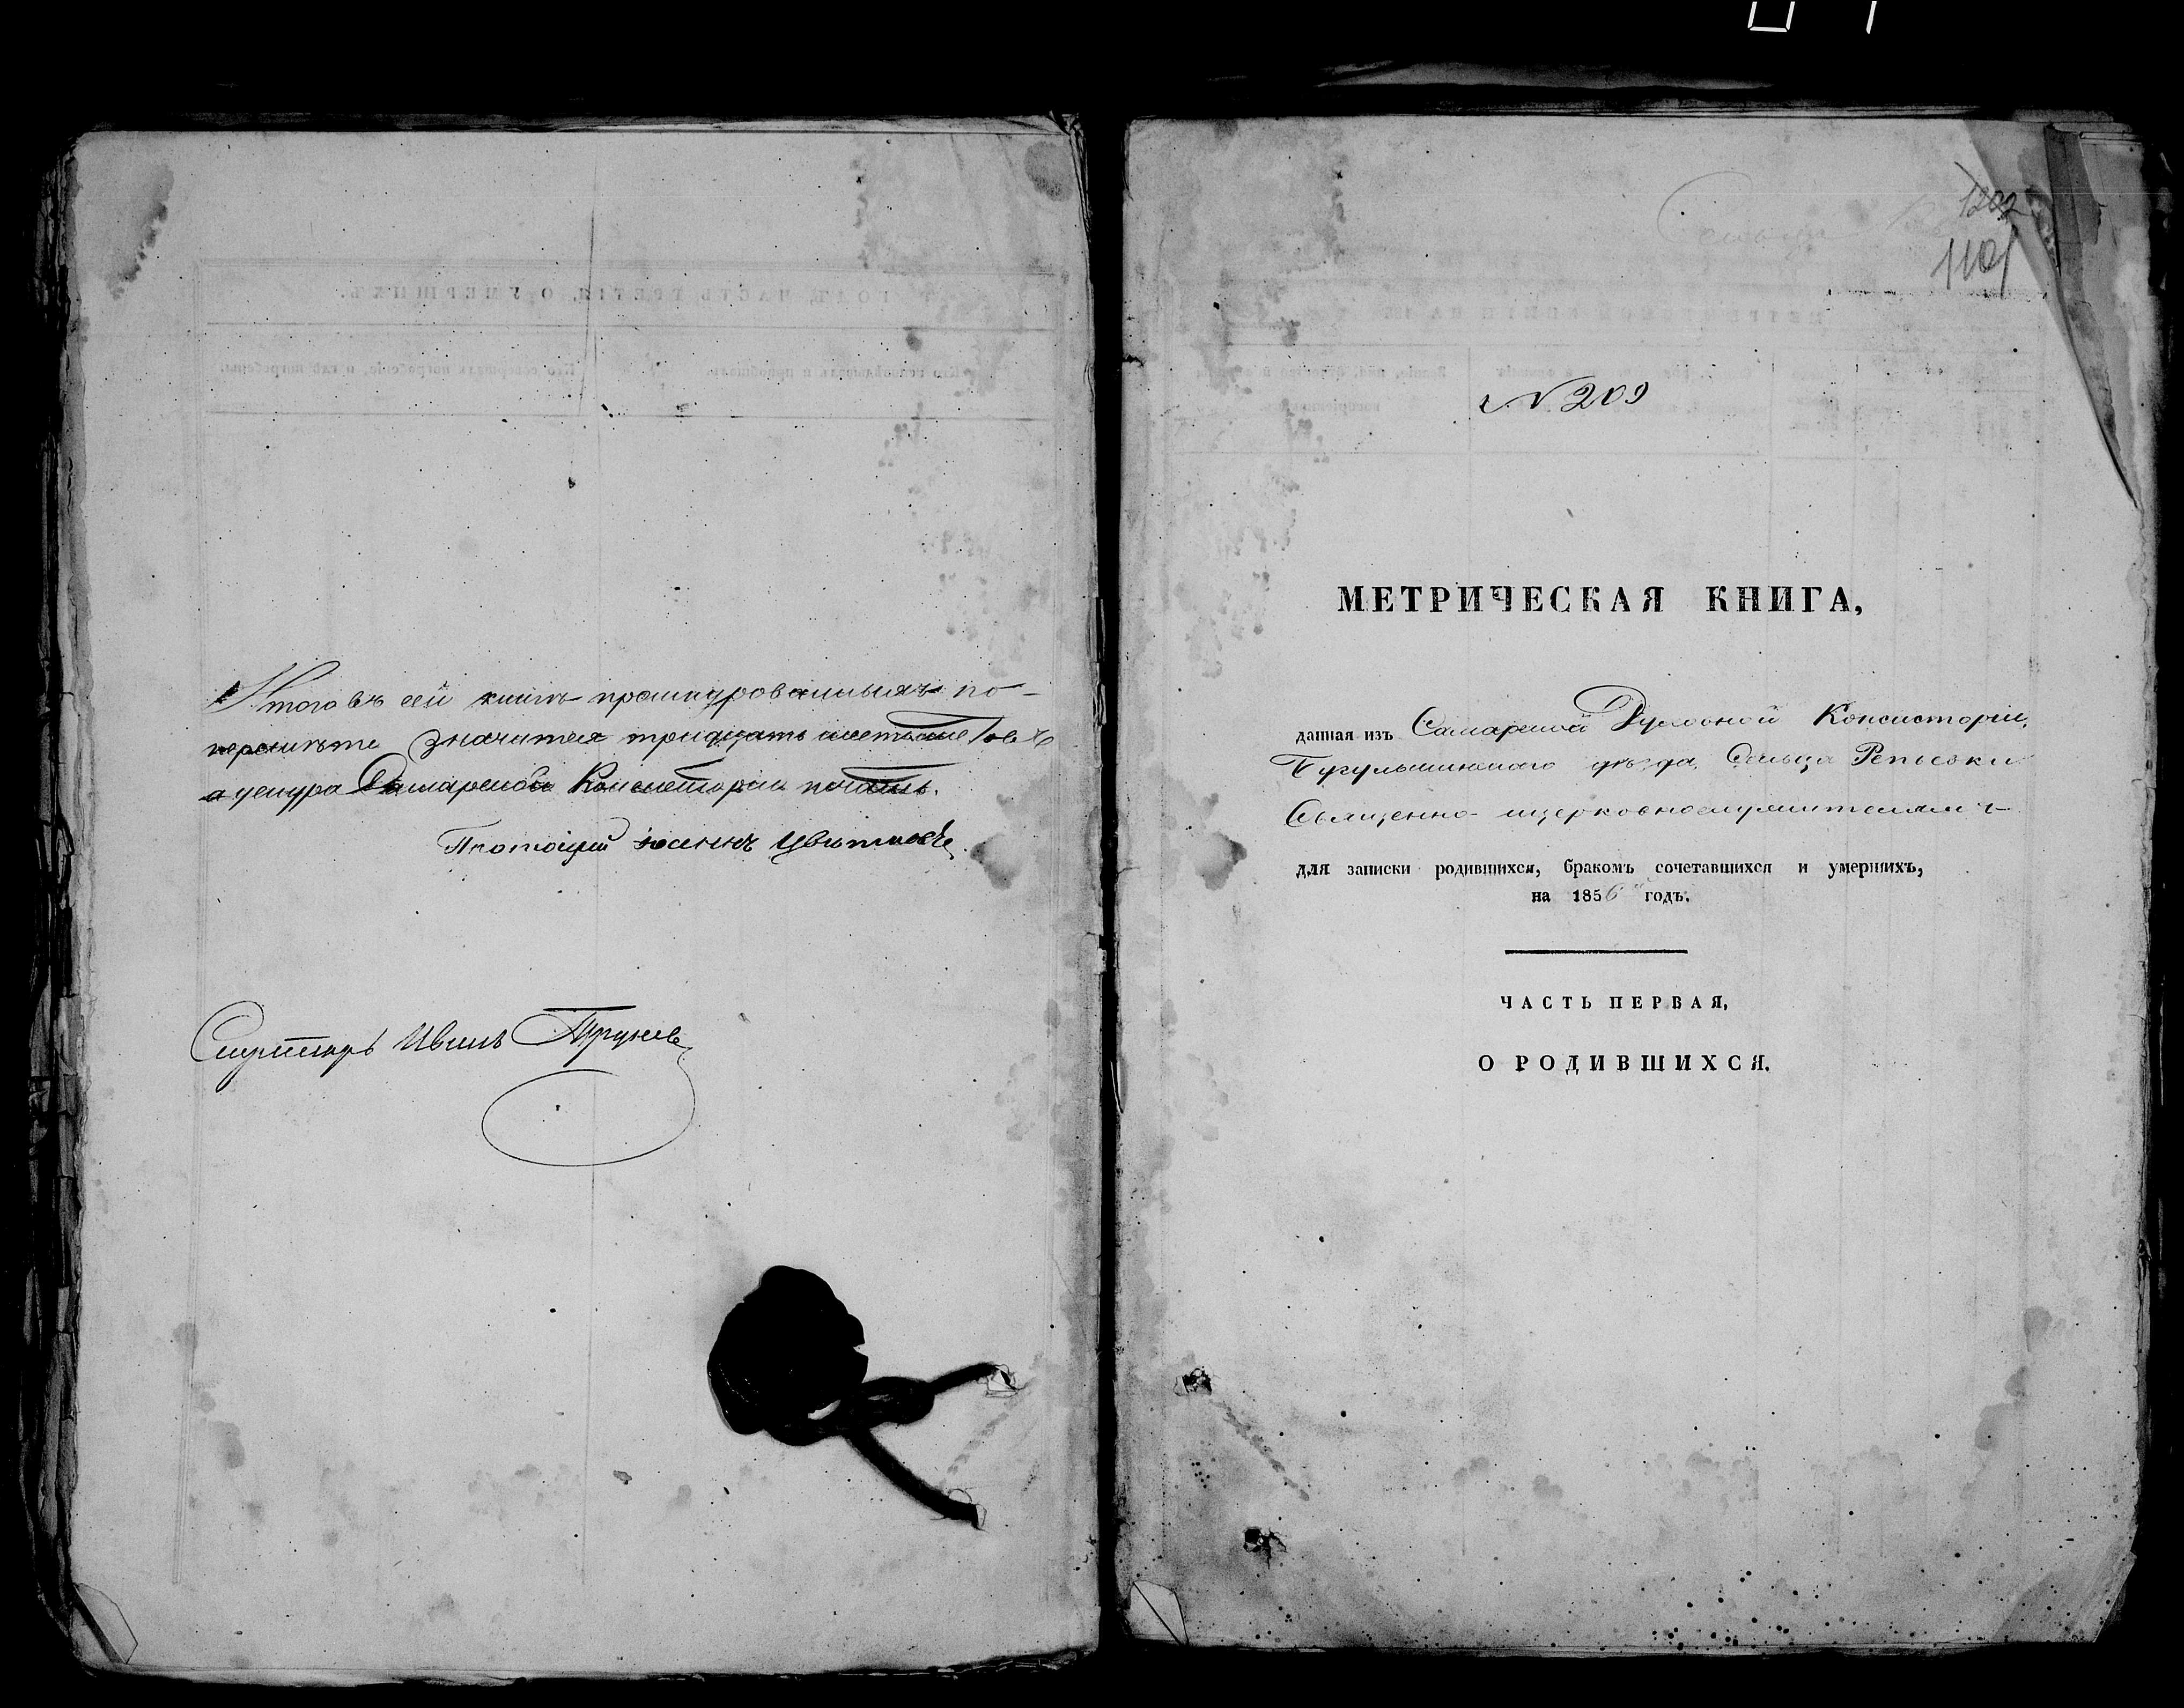 Итого въ сей книгѣ прошнурованныхъ по-
перешитѣ значится тридцать листовъ
а у снура Самарской Консисторіи печать.
Протоіерей Іоаннъ Цвѣтковъ
Секретарь Иванъ
1202
1101
№ 209
МЕТРИЧЕСКАЯ КНИГА,
данная изъ Самарской Духовной Консисторіи,
Бугульминскаго уѣзда, Сельца Репьевки
Священно-ицерковнослужителямъ
для записки родившихся, бракомъ сочетавшихся и умершихъ,
на 1856 годъ.
ЧАСТЬ ПЕРВАЯ,
О РОДИВШИХСЯ.